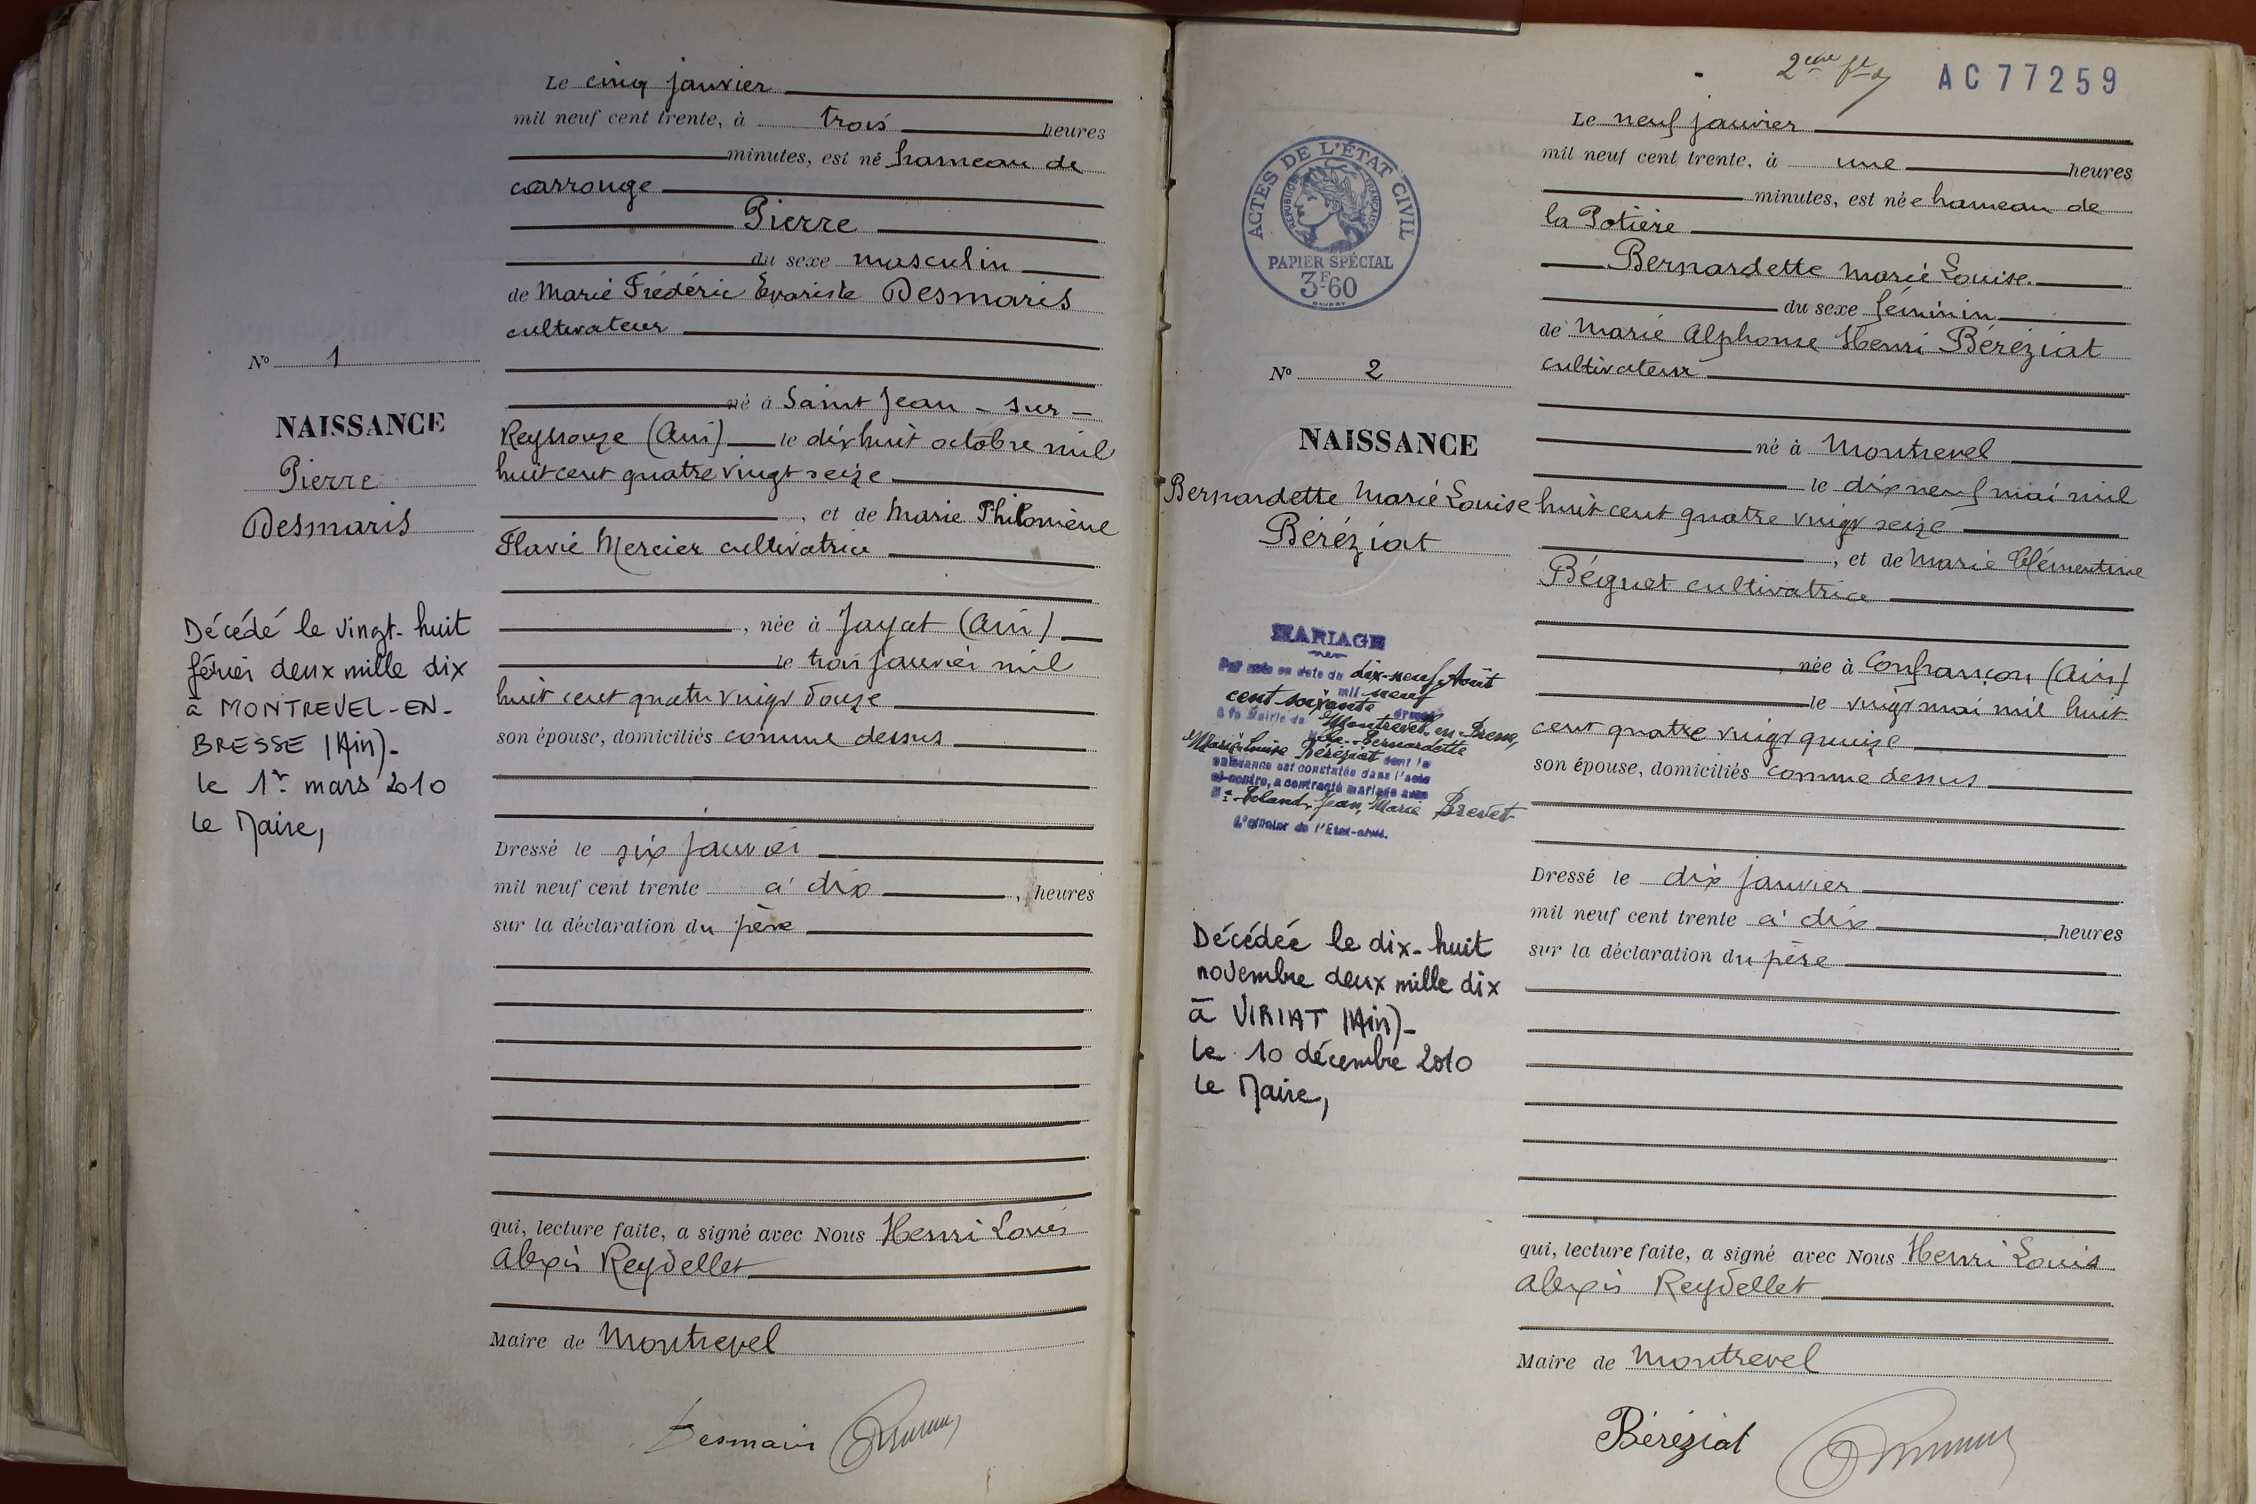 Le cinq janvier
mil neuf cent trente, à trois heures
minutes, est né hameau de
carrouge
Pierre
du sexe masculin
de Marie Frédéric Evariste Desmaris
cultivateur
né à Saint Jean - sur -
Reyssouze (Ain) le dix huit octobre mil
huit cent quatre vingt seize
, et de Marie Philomène
Flavie Mercier cultivatrice
, née à Jayat (Ain)
le trois janvier mil
huit cent quatre vingt douze
son épouse, domiciliés comme dessus
Dressé le six janvier
mil neuf cent trente à dix , heures
sur la déclaration du père
qui, lecture faite, a signé avec Nous Henri Louis
Alexis Reydellet
Maire de Montrevel
Desmaris
N° 1
NAISSANCE
Pierre
Desmaris
Décédé le vingt-huit
février deux mille dix
à MONTREVEL-EN-
BRESSE (Ain)-
le 1er mars 2010
Le Maire,
2ème
AC77259
Le neuf janvier
mil neuf cent trente, à une heures
minutes, est née hameau de
la Potière
Bernardette Marie Louise
du sexe féminin
de Marie Alphonse Henri Béréziat
cultivateur
né à Montrevel
le dix neuf mai mil
huit cent quatre vingt seize
, et de Marie Clémentine
Béguet cultivatrice
, née à Confrançon (Ain)
le vingt mai mil huit
cent quatre vingt quinze
son épouse, domiciliés comme dessus
Dressé le dix janvier
mil neuf cent trente à dix heures
sur la déclaration du père
qui, lecture faite, a signé avec Nous Henri Louis
Alexis Reydellet
Maire de Montrevel
Béréziat
ACTES DE L'ÉTAT CIVIL
RÉPUBLIQUE FRANÇAISE
PAPIER SPÉCIAL
3F60
N° 2
NAISSANCE
Bernardette Marie Louise
Béréziat
MARIAGE
Par acte en date du dix-neuf Août
mil neuf
cent soixante dressé
à la Mairie de Montrevel-en-Bresse,
Bernardette
Marie-Louise Béréziat dont la
naissance est constatée dans l'acte
ci-contre, a contracté mariage avec
Mr Roland, Jean, Marie Brevet
L'officier de l'Etat-civil.
Décédée le dix-huit
novembre deux mille dix
à VIRIAT (Ain)-
le 10 décembre 2010
Le Maire,